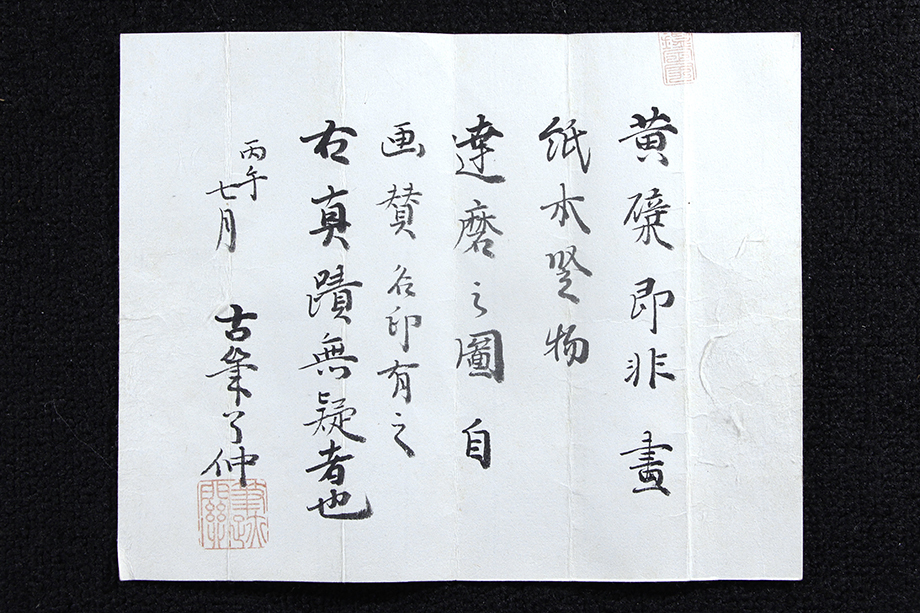 黄檗即非畫
紙本竪物
達磨之圖自
画賛名印有之
右真蹟無疑者也
丙午
七月
古筆了仲